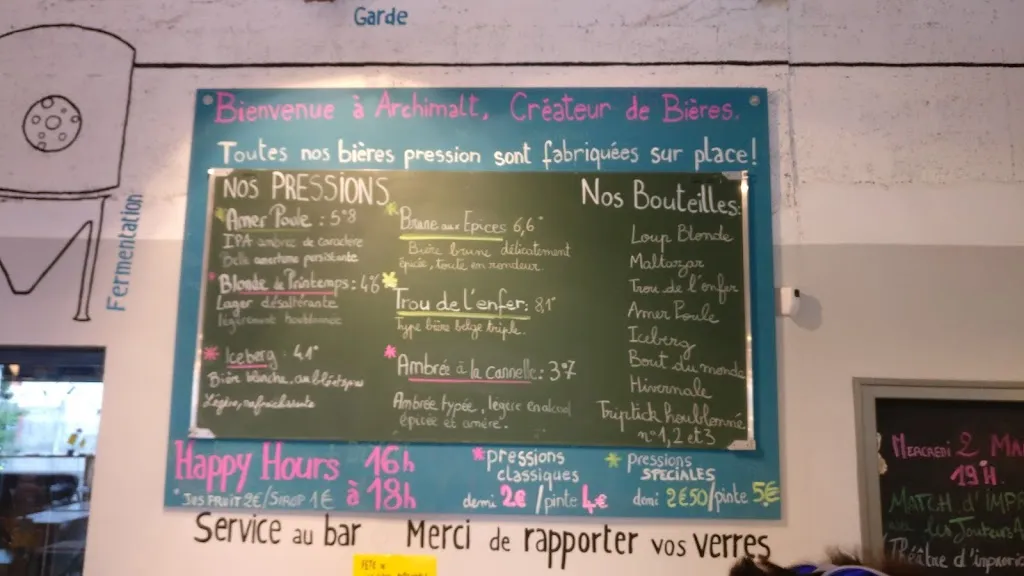 Garde
Fermentation
Bienvenue à Archimalt, Créateur de Bières.
Toutes nos bières pression sont fabriquées sur place!
Nos PRESSIONS
Amer Poule : 5°8
IPA ambrée de caractère
Belle amertume persistante
Blonde de Printemps : 4,6°
Lager désaltérante
légèrement houblonnée
Iceberg : 4,1°
Bière blanche, aux blés épis
Légère, rafraîchissante
Brune aux Epices 6,6°
Bière brune délicatement
épicée, toute en rondeur.
Trou de l'enfer : 8,1°
Type bière belge triple.
Ambrée à la Cannelle : 3°7
Ambrée typée, légère en alcool
épicée et amère.
Nos Bouteilles:
Loup Blonde
Maltazar
Trou de l'enfer
Amer Poule
Iceberg
Bout du monde
Hivernale
Triptick houblonné
n°1, 2 et 3
Happy Hours 16h
à 18h
*Jus fruit 2€/Sirop 1€
*pressions
classiques
demi 2€/pinte 4€
*pressions
SPÉCIALES
demi 2€50/pinte 5€
Service au bar Merci de rapporter vos verres
MERCREDI 2 MA
19H.
MATCH d'IMPR
Théâtre d'improvi